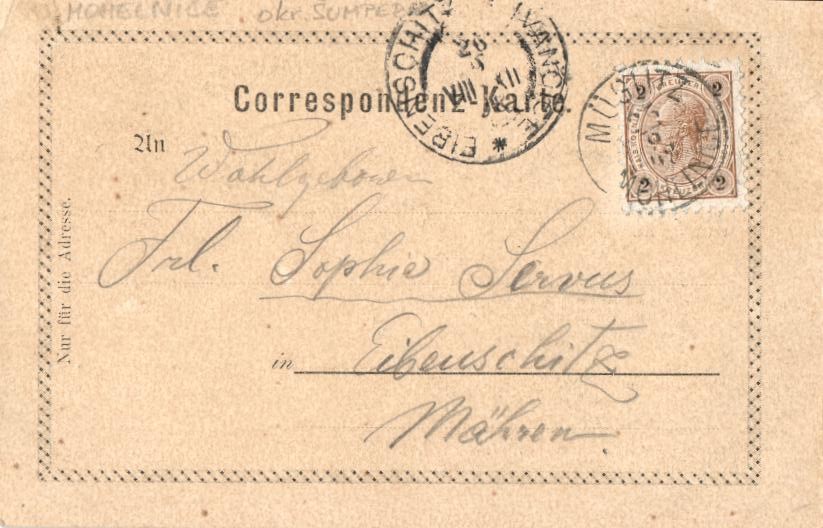 MOHELNICE okr. ŠUMPERK
EIBENSCHITZ IVANČICE
VIII XII
Correspondenz-Karte.
MÜGLITZ
2 2
2 2
An
Wohlgeboren
Frl. Sophie Servus
in Eibenschitz
Mähren.
Nur für die Adresse.